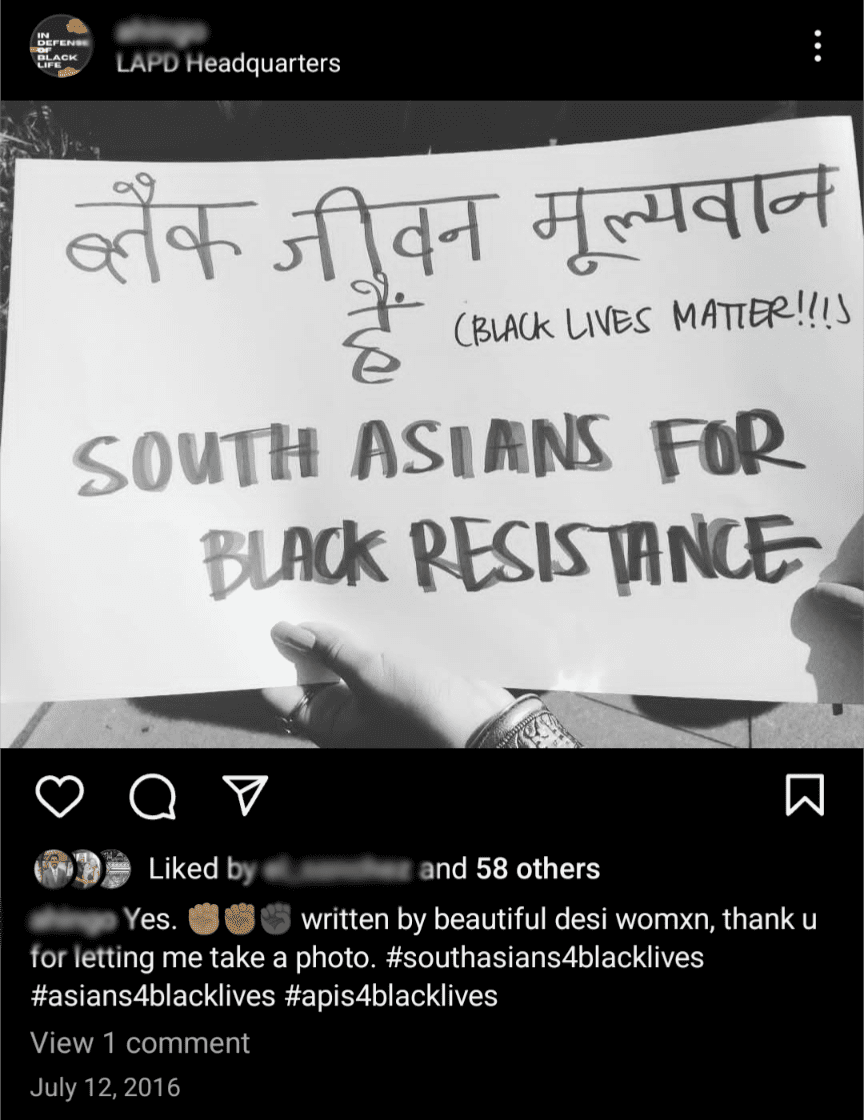 IN
DEFENSE
OF
BLACK
LIFE
LAPD Headquarters
ब्लैक जीवन मूल्यवान
हैं (BLACK LIVES MATTER!!!)
SOUTH ASIANS FOR
BLACK RESISTANCE
Liked by and 58 others
Yes. ✊🏽✊🏽✊🏿 written by beautiful desi womxn, thank u
for letting me take a photo. #southasians4blacklives
#asians4blacklives #apis4blacklives
View 1 comment
July 12, 2016